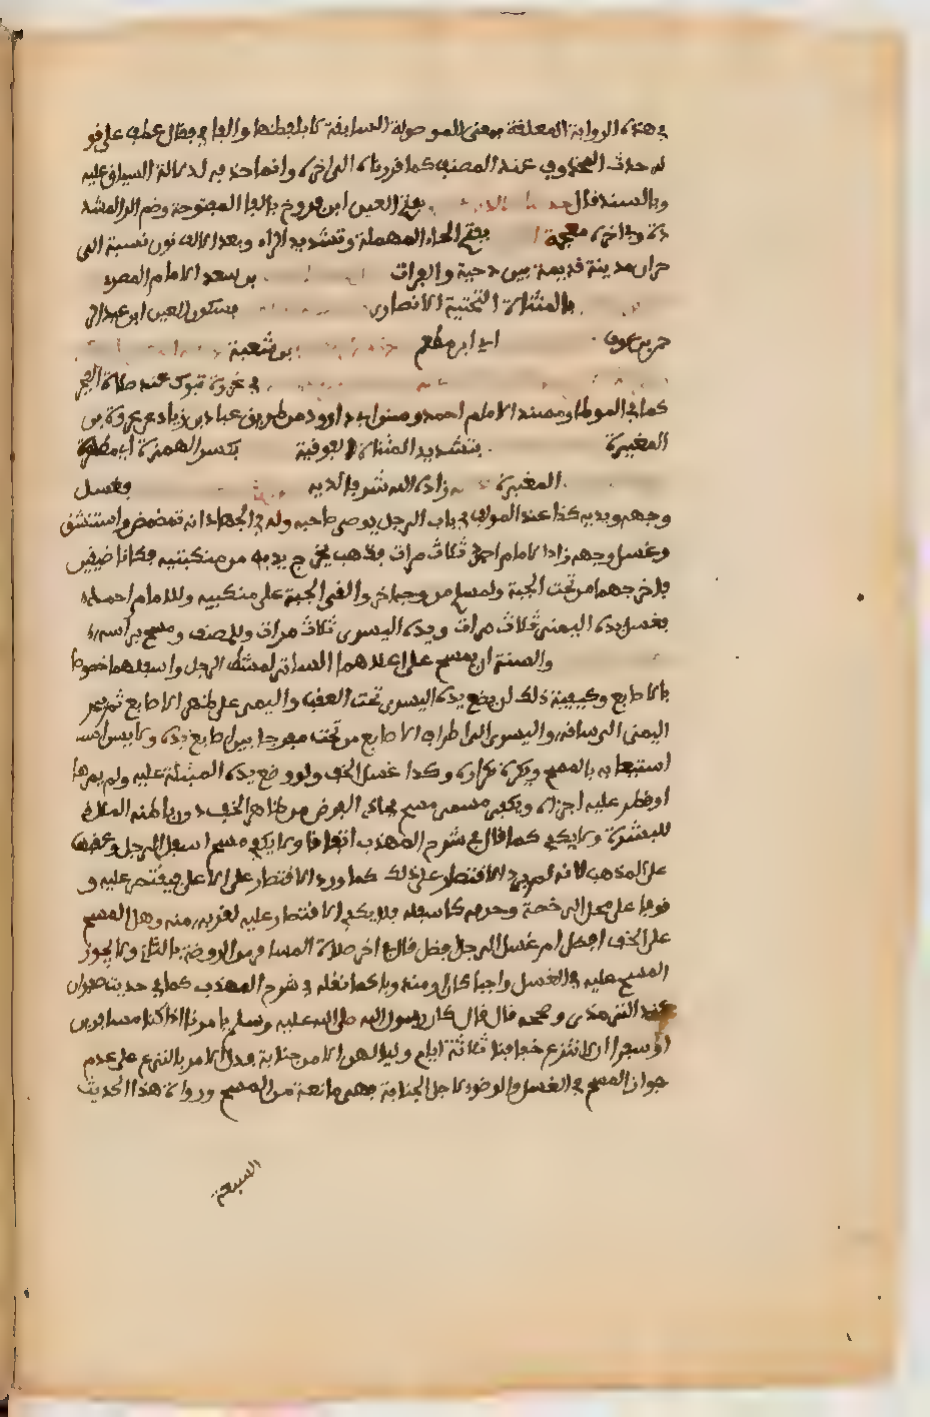 في هذه الرواية المعلقة بمعنى الموصولة السابقة لا بلفظها والفا في فقال عطف على قو
له حدث المحذوف عند المصنف كما قررناه الى اخره وانما حذفه لدلالة السياق عليه
وبالسند قال بفتح العين ابن فروخ بالفا المفتوحة وضم الرا المشد
دة وفي اخره معجمة بفتح الحاء المهملة وتشديد الراء وبعد الالف نون نسبة الى
حران مدينة قديمة بين دجلة والفرات بن سعد الامام المصري
بالمثناة التحتية الانصاري بسكون العين ابن عبد الر
حمن بن عوف اي ابن مطعم بن شعبة
في غزوة تبوك عند صلاة الفجر
كما في الموطا ومسند الامام احمد وسنن ابي داوود من طريق عباد بن زياد عن عروة بن
المغيرة بتشديد المثناة الفوقية بكسر الهمزة اي مطهرة
المغيرة زاده الله شرفا لديه فغسل
وجهه ويديه كذا عند المولف في باب الرجل يوضي صاحبه وله في الجهاد انه تمضمض واستنشق
وغسل وجهه زاد الامام احمد ثلاث مرات فذهب يخرج يديه من منكبيه فكانا ضيقين
فاخرجهما من تحت الجبة ولمسلم من وجه اخر والقى الجبة على منكبيه وللامام احمد
فغسل يده اليمنى ثلاث مرات ويده اليسرى ثلاث مرات وللمصنف ومسح براسه
والسنة ان يمسح على اعلاهما الساتر لمشط الرجل واسفلهما خطوطا
بالاصابع وكيفية ذلك ان يضع يده اليسرى تحت العقب واليمنى على ظهر الاصابع ثم يمر
اليمنى الى ساقه واليسرى الى اطراف الاصابع من تحت مفرجا بين اصابع يده ولا يسن
استيعابه بالمسح ويكره تكراره وكذا غسل الخف ولو وضع يده المبتلة عليه ولم يمرها
او قطر عليه اجزاه ويكفي مسمى مسح يحاذي الفرض من ظاهر الخف دون باطنه الملاقي
للبشرة ولا يكفي كما قال في شرح المهذب اتفاقا ولا يكفي مسح اسفل الرجل وعقبها
على المذهب لانه لم يرد الاقتصار على ذلك كما ورد الاقتصار على الاعلى فيقتصر عليه و
قوفا على محل الرخصة وحرفه كاسفله فلا يكفي الاقتصار عليه لقربه منه وهل المسح
على الخف افضل ام غسل الرجل فضل قال في اخر صلاة المسافر من الروضة بالثاني ولا يجوز
المسح عليه في الغسل واجبا كان او مندوبا كما نقله في شرح المهذب كما في حديث صفوان
عند الترمذي وصححه قال قال كان رسول الله صلى الله عليه وسلم يامرنا اذا كنا مسافرين
او سفرا ان لا ننزع خفافنا ثلاثة ايام ولياليهن الا من جنابة فدل الامر بالنزع على عدم
جواز المسح في الغسل والوضوء لاجل الجنابة فهي مانعة من المسح ورواة هذا الحديث
السبعة